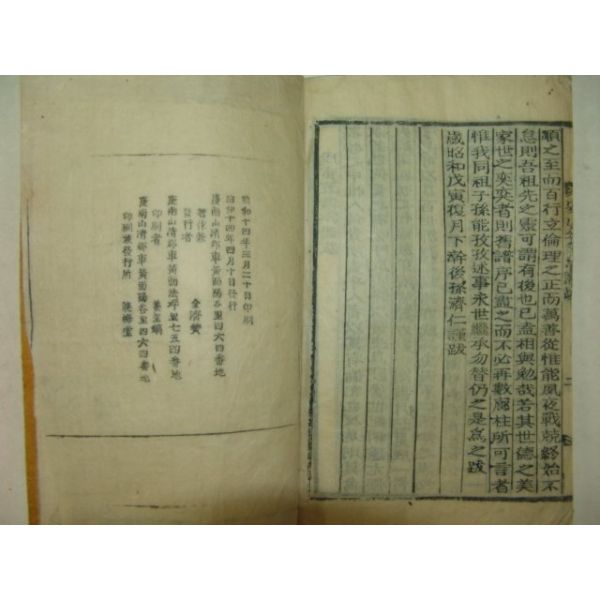 順之至而百行立倫理之正而萬善從惟能夙夜戰兢終始不
怠則吾祖先之靈可謂有後也已盍相與勉哉若其世德之美
家世之奕奕者則舊譜序已盡之而不必再數膠柱所可言者
惟我同祖子孫能孜孜述事永世繼承勿替仍之是爲之跋
歲昭和戊寅復月下澣後孫濟仁謹跋
昭和十四年三月二十日印刷
昭和十四年四月十日發行
慶南山清郡車黃面陽谷里四六四番地
著作兼
發行者 金濟黃
慶南山清郡車黃面法坪里七五四番地
印刷者
慶南山清郡車黃面陽谷里四六四番地
印刷兼發行所